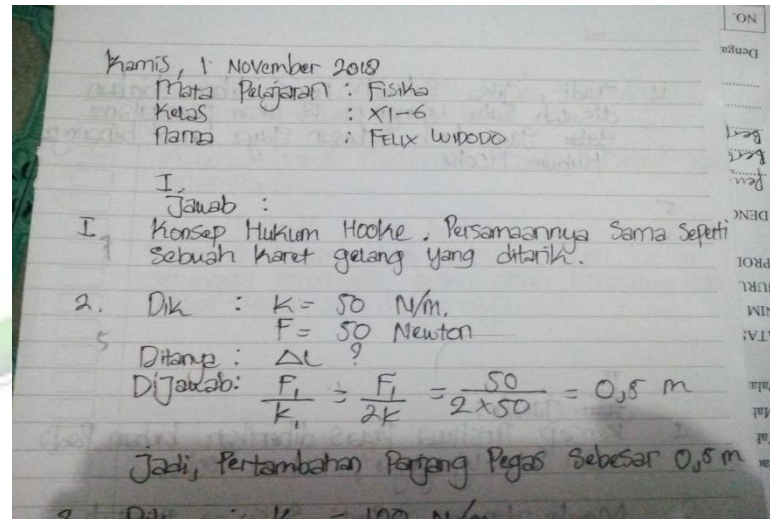 Kamis, 1 November 2018
Mata Pelajaran : Fisika
Kelas : XI-6
Nama : FELIX WIDODO
I.
Jawab :
I. Konsep Hukum Hooke. Persamaannya Sama Seperti
sebuah karet gelang yang ditarik.
7
2. Dik : K = 50 N/m.
F = 50 Newton
5
Ditanya : ΔL ?
DiJawab: F₁/K₁ = F₁/2K = 50/2×50 = 0,5 m
Jadi, Pertambahan Panjang Pegas Sebesar 0,5 m
Dik : K = 100 N/m
NO.
Denga
DENG
PROF
JURU
NIM